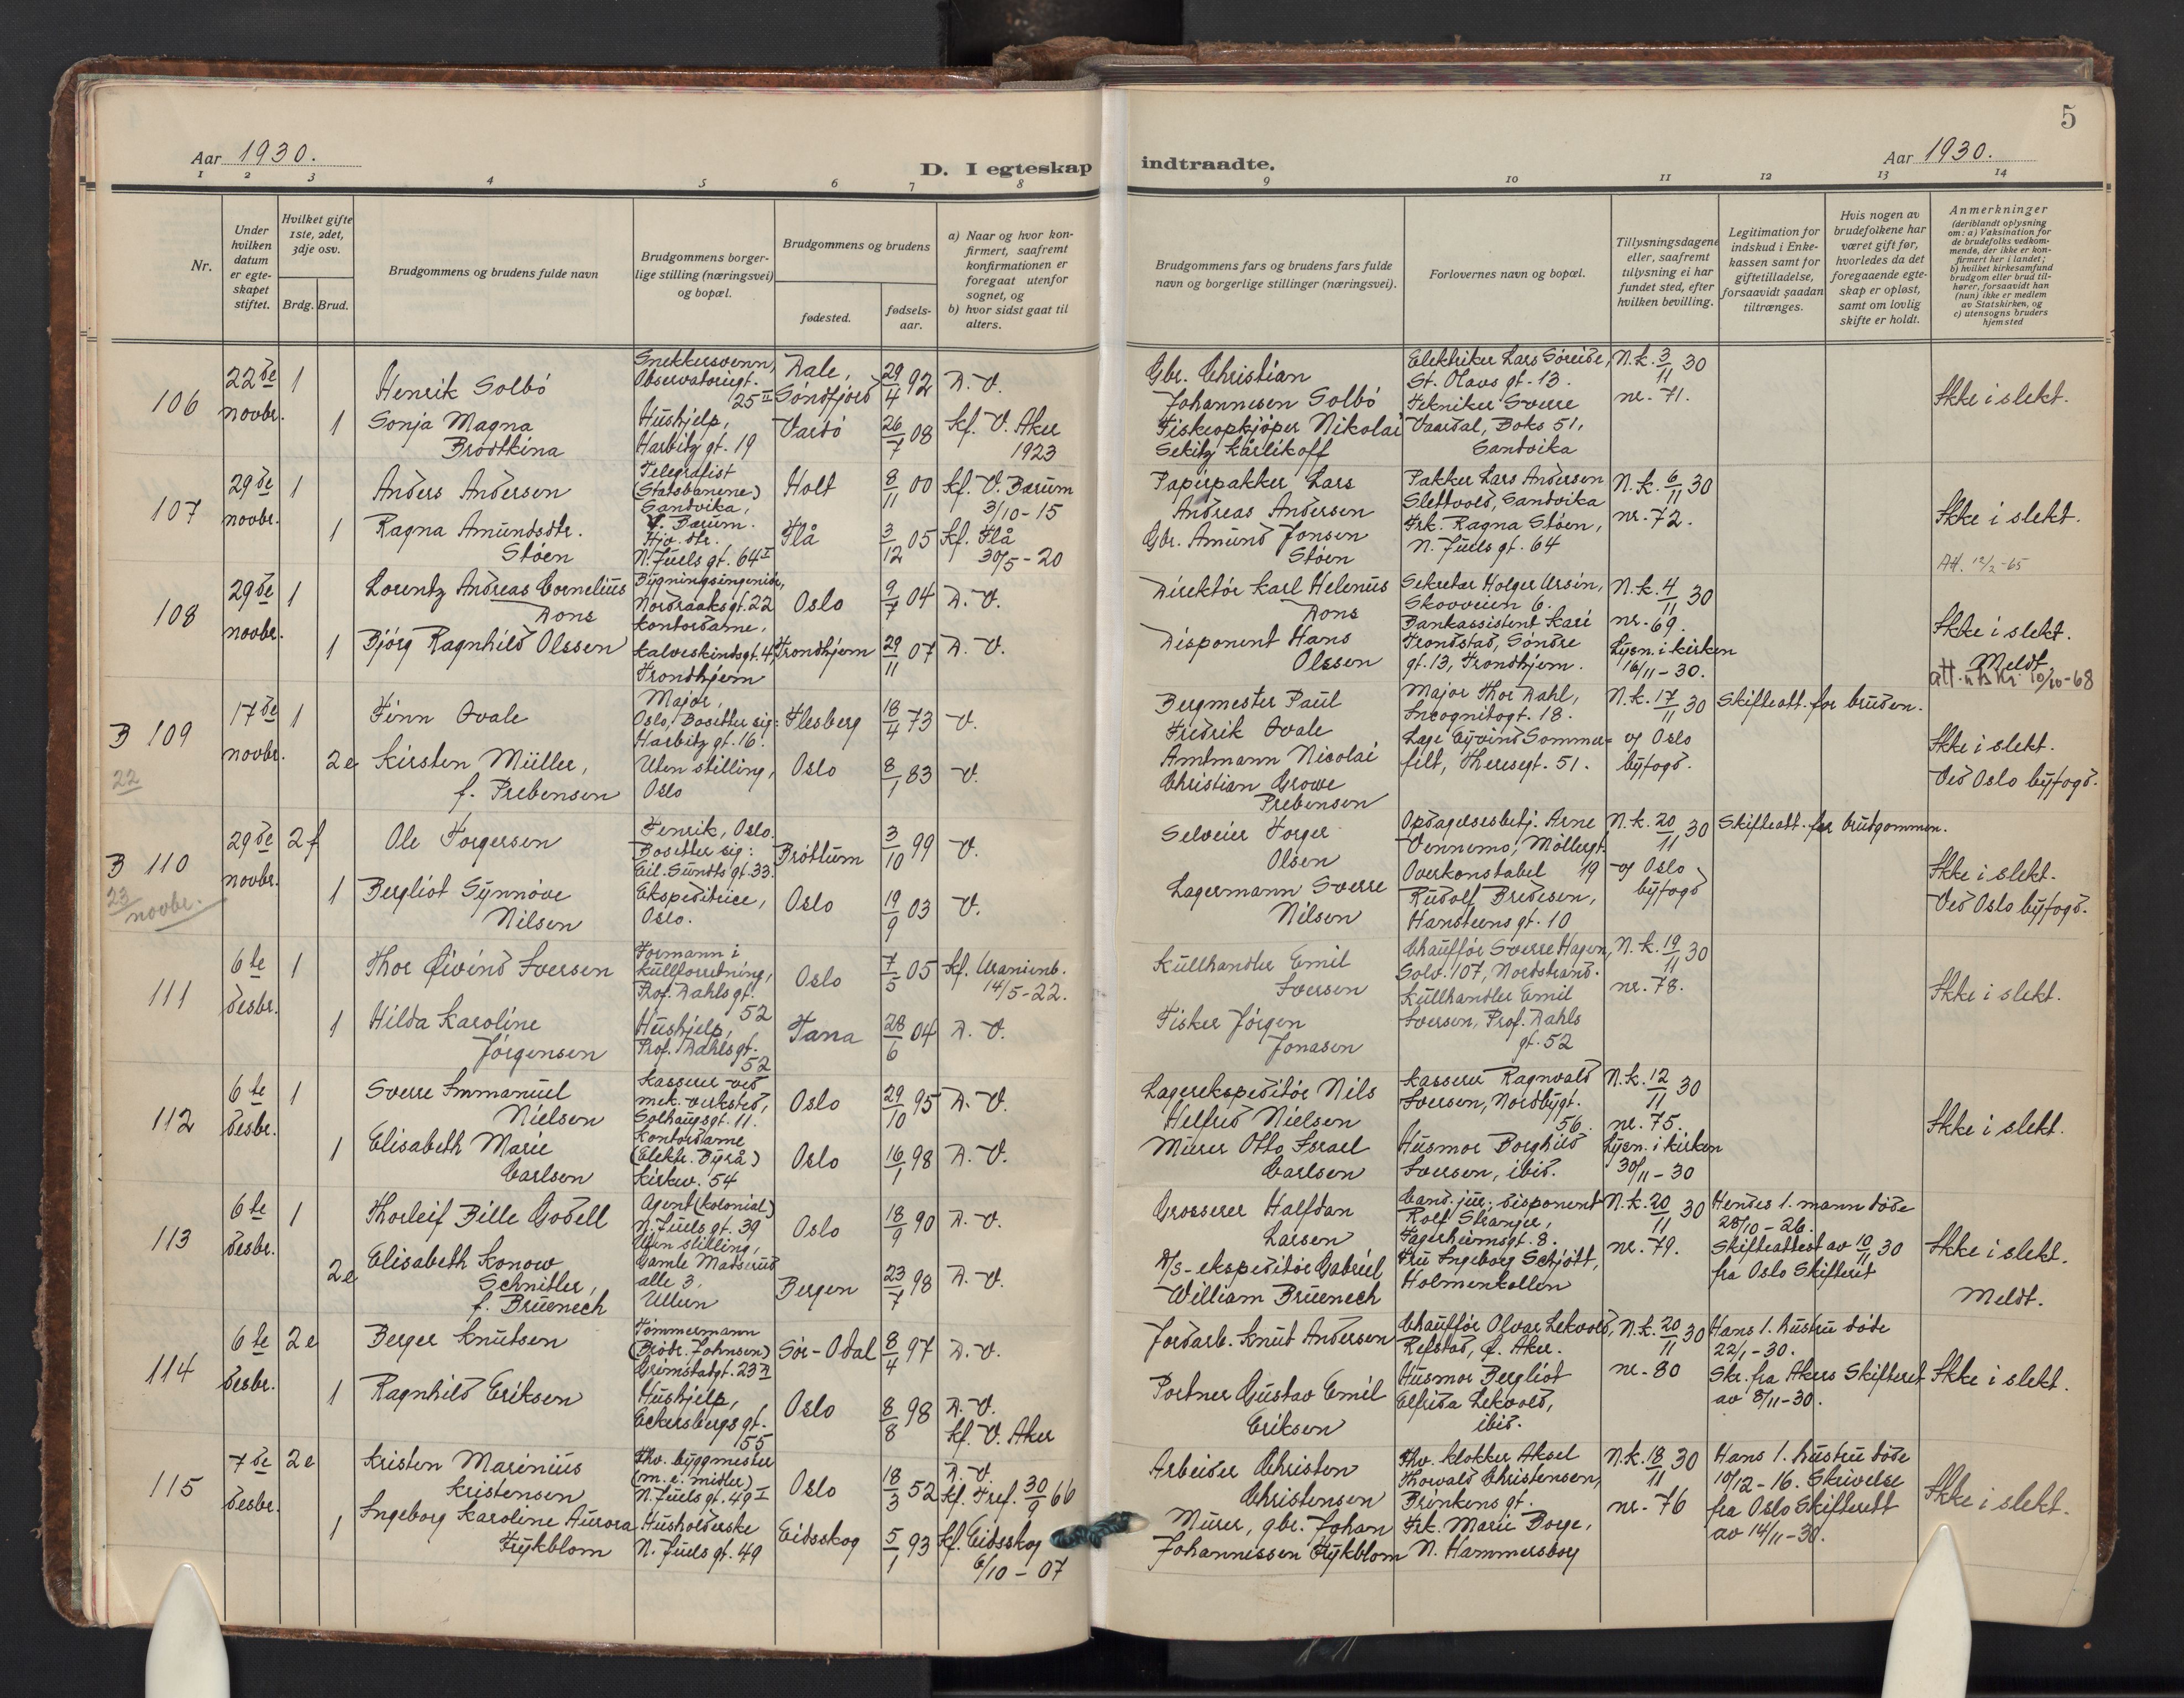 5
Aar 1930.
D. I egteskap indtraadte.
Aar 1930.
1 2 3 4 5 6 7 8 9 10 11 12 13 14
Nr.
Under hvilken datum er egteskapet stiftet.
Hvilket gifte 1ste, 2det, 3dje osv.
Brdg. Brud.
Brudgommens og brudens fulde navn
Brudgommens borgerlige stilling (næringsvei) og bopæl.
Brudgommens og brudens
fødested.
fødselsaar.
a) Naar og hvor konfirmert, saafremt konfirmationen er foregaat utenfor sognet, og
b) hvor sidst gaat til alters.
Brudgommens fars og brudens fars fulde navn og borgerlige stillinger (næringsvei).
Forlovernes navn og bopæl.
Tillysningsdagene eller, saafremt tillysning ei har fundet sted, efter hvilken bevilling.
Legitimation for indskud i Enkekassen samt for giftetilladelse, forsaavidt saadan tiltrænges.
Hvis nogen av brudefolkene har været gift før, hvorledes da det foregaaende egteskap er opløst, samt om lovlig skifte er holdt.
Anmerkninger (deriblandt oplysning om: a) Vaksination for de brudefolks vedkommende, der ikke er konfirmert her i landet; b) hvilket kirkesamfund brudgom eller brud tilhører, forsaavidt han (hun) ikke er medlem av Statskirken, og c) utensogns bruders hjemsted
106
22de novbr.
1
Henrik Solbö
Snekkersvenn, Observatoriegt. 25 II
Dale, Söndfjord
29/4 92
D. V.
Gbr. Christian Johannesen Solbö
Elektriker Lars Söreide, St. Olavs gt. 13.
N.k. 3/11 30
nr. 71.
Ikke i slekt.
1
Sonja Magna Brodtkina
Hushjelp, Harbitz gt. 19
Vardö
26/7 08
Kf. V. Aker 1923
Fiskeopkjöper Nikolai Sekitz Karlikoff
Tekniker Sverre Vaardal, Boks 51, Sandvika
107
29de novbr.
1
Anders Andersen
Telegrafist (Statsbanene) Sandvika, V. Bærum.
Holt
8/11 00
Kf. V. Bærum 3/10-15
Papirpakker Lars Andreas Andersen
Pakker Lars Andersen Slettvold, Sandvika
N.k. 6/11 30
nr. 72.
Ikke i slekt.
1
Ragna Amundsdtr. Stöen
Hjv. dtr. N. Juels gt. 64 I
Flå
3/12 05
Kf. Flå 30/5-20
Gbr. Amund Jonsen Stöen
Frk. Ragna Stöen, N. Juels gt. 64
Att. 12/2-65
108
29de novbr.
1
Lorentz Andreas Cornelius Dons
Bygningsingeniör, Nordraaksgt. 22
Oslo
9/7 04
D. V.
Direktör Karl Helenus Dons
Sekretær Holger Ursin, Skovveien 6.
N.k. 4/11 30
nr. 69.
Ikke i slekt.
1
Bjórg Ragnhild Olssen
Kontordame, Kalveskindsgt. 4, Trondhjem
Trondhjem
29/11 07
D. V.
Disponent Hans Olssen
Bankassistent Kari Trondstad, Söndre gt. 13, Trondhjem.
Lysn. i kirken 16/11-30.
Meldt
att. utskr. 10/10-68
B 109
22
17de novbr.
1
Finn Qvale
Major, Oslo, Bosetter sig: Harbitz gt. 16.
Flesberg
18/4 73
V.
Bergmester Paul Fredrik Qvale
Major Thor Dahl, Incognitogt. 18.
N.k. 17/11 30
Skifteatt. for bruden.
Ikke i slekt.
2e
Kirsten Müller, f. Prebensen
Uten stilling, Oslo
Oslo
8/1 83
V.
Amtmann Nicolai Christian Grove Prebensen
Læge Eyvind Sommerfelt, Theresgt. 51.
og Oslo byfogd.
Ved Oslo byfogd.
B 110
23 novbr.
29de novbr.
2 f
Ole Torgersen
Fenrik, Oslo. Bosetter sig: Eil. Sundts gt. 33.
Bröttum
3/10 99
V.
Selveier Torger Olsen
Opdagelsesbetj. Arne Vennemo, Möllergt. 19
N.k. 20/11 30
Skifteatt. for brudgommen.
Ikke i slekt.
1
Bergliot Synnöve Nilsen
Ekspeditrice, Oslo.
Oslo
19/9 03
V.
Lagermann Sverre Nilsen
Overkonstabel Rudolf Bredesen, Hansteens gt. 10
og Oslo byfogd
Ved Oslo byfogd.
111
6te desbr.
1
Thor Øivind Iversen
Formann i kullforretning, Prof. Dahls gt. 52
Oslo
7/5 05
Kf. Uranienb. 14/5-22.
Kullhandler Emil Iversen
Chauffør Sverre Hagen, Solv. 107, Nordstrand.
N.k. 19/11 30
nr. 78.
Ikke i slekt.
1
Hilda Karoline Jörgensen
Hushjelp, Prof. Dahls gt. 52
Tana
28/6 04
D. V.
Fisker Jörgen Jonasen
Kullhandler Emil Iversen, Prof. Dahls gt. 52
112
6te desbr.
1
Sverre Immanuel Nielsen
Kasserer ved mek. verksted, Solhaugsgt. 11.
Oslo
29/10 95
D. V.
Lagerekspeditör Nils Helfred Nielsen
Kasserer Ragnvald Iversen, Nordbygt. 56.
N.k. 12/11 30
nr. 75.
Ikke i slekt.
1
Elisabeth Marie Carlsen
Kontordame (Elektr. Byrå) Kirkev. 54
Oslo
16/1 98
D. V.
Murer Otto Israel Carlsen
Husmor Borghild Iversen, ibid.
Lysn. i kirken 30/11-30
113
6te desbr.
1
Thorleif Bille Godell
Agent (kolonial) N. Juels gt. 39
Oslo
18/9 90
D. V.
Grosserer Halfdan Larsen
Cand. jur., disponent Rolf Stranger, Fagerheimsgt. 8.
N.k. 20/11 30
nr. 79.
Hendes 1. mann döde 28/10-26. Skifteattest av 10/11 30 fra Oslo Skifteret
Ikke i slekt.
2e
Elisabeth Konow Schnitler, f. Bruenech
Uten stilling, Gamle Madserud alle 3, Ullern
Bergen
23/7 98
D. V.
D/S-ekspeditör Gabriel William Bruenech
Fru Ingeborg Schjött, Holmenkollen
Meldt.
114
6te desbr.
2e
Berger Knutsen
Tömmermann (Brödr. Johnsen) Grimstadgt. 23
Sör-Odal
8/4 97
D. V.
Jordarb. Knut Andersen
Chaufför Olvar Lekvold, Refstad, Ø. Aker.
N.k. 20/11 30
nr. 80
Hans 1. hustru döde 22/1-30. Skr. fra Akers Skifteret av 8/11-30.
Ikke i slekt.
1
Ragnhild Eriksen
Hushjelp, Eckersbergs gt. 55
Oslo
8/8 98
D. V. Kf. V. Aker
Portner Gustav Emil Eriksen
Husmor Bergliot Elfrida Lekvold, ibid.
115
7de desbr.
2e
Kristen Marinius Kristensen
Fhv. byggmester (m. e. midler) N. Juels gt. 49 I
Oslo
18/3 52
D. V. Kf. Tref. 30/9 66
Arbeider Christen Christensen
Fhv. klokker Aksel Thorvald Christensen, Brinkens gt.
N.k. 18/11 30
nr. 76
Hans 1. hustru döde 10/12-16. Skrivelse fra Oslo Skifterett av 14/11-30.
Ikke i slekt.
1
Ingeborg Karoline Aurora Frykblom
Husholderske N. Juels gt. 49
Eidsskog
5/1 93
Kf. Eidsskog 6/10-07
Murer, gbr. Johan Johannessen Frykblom
Frk. Marie Borge, N. Hammersborg